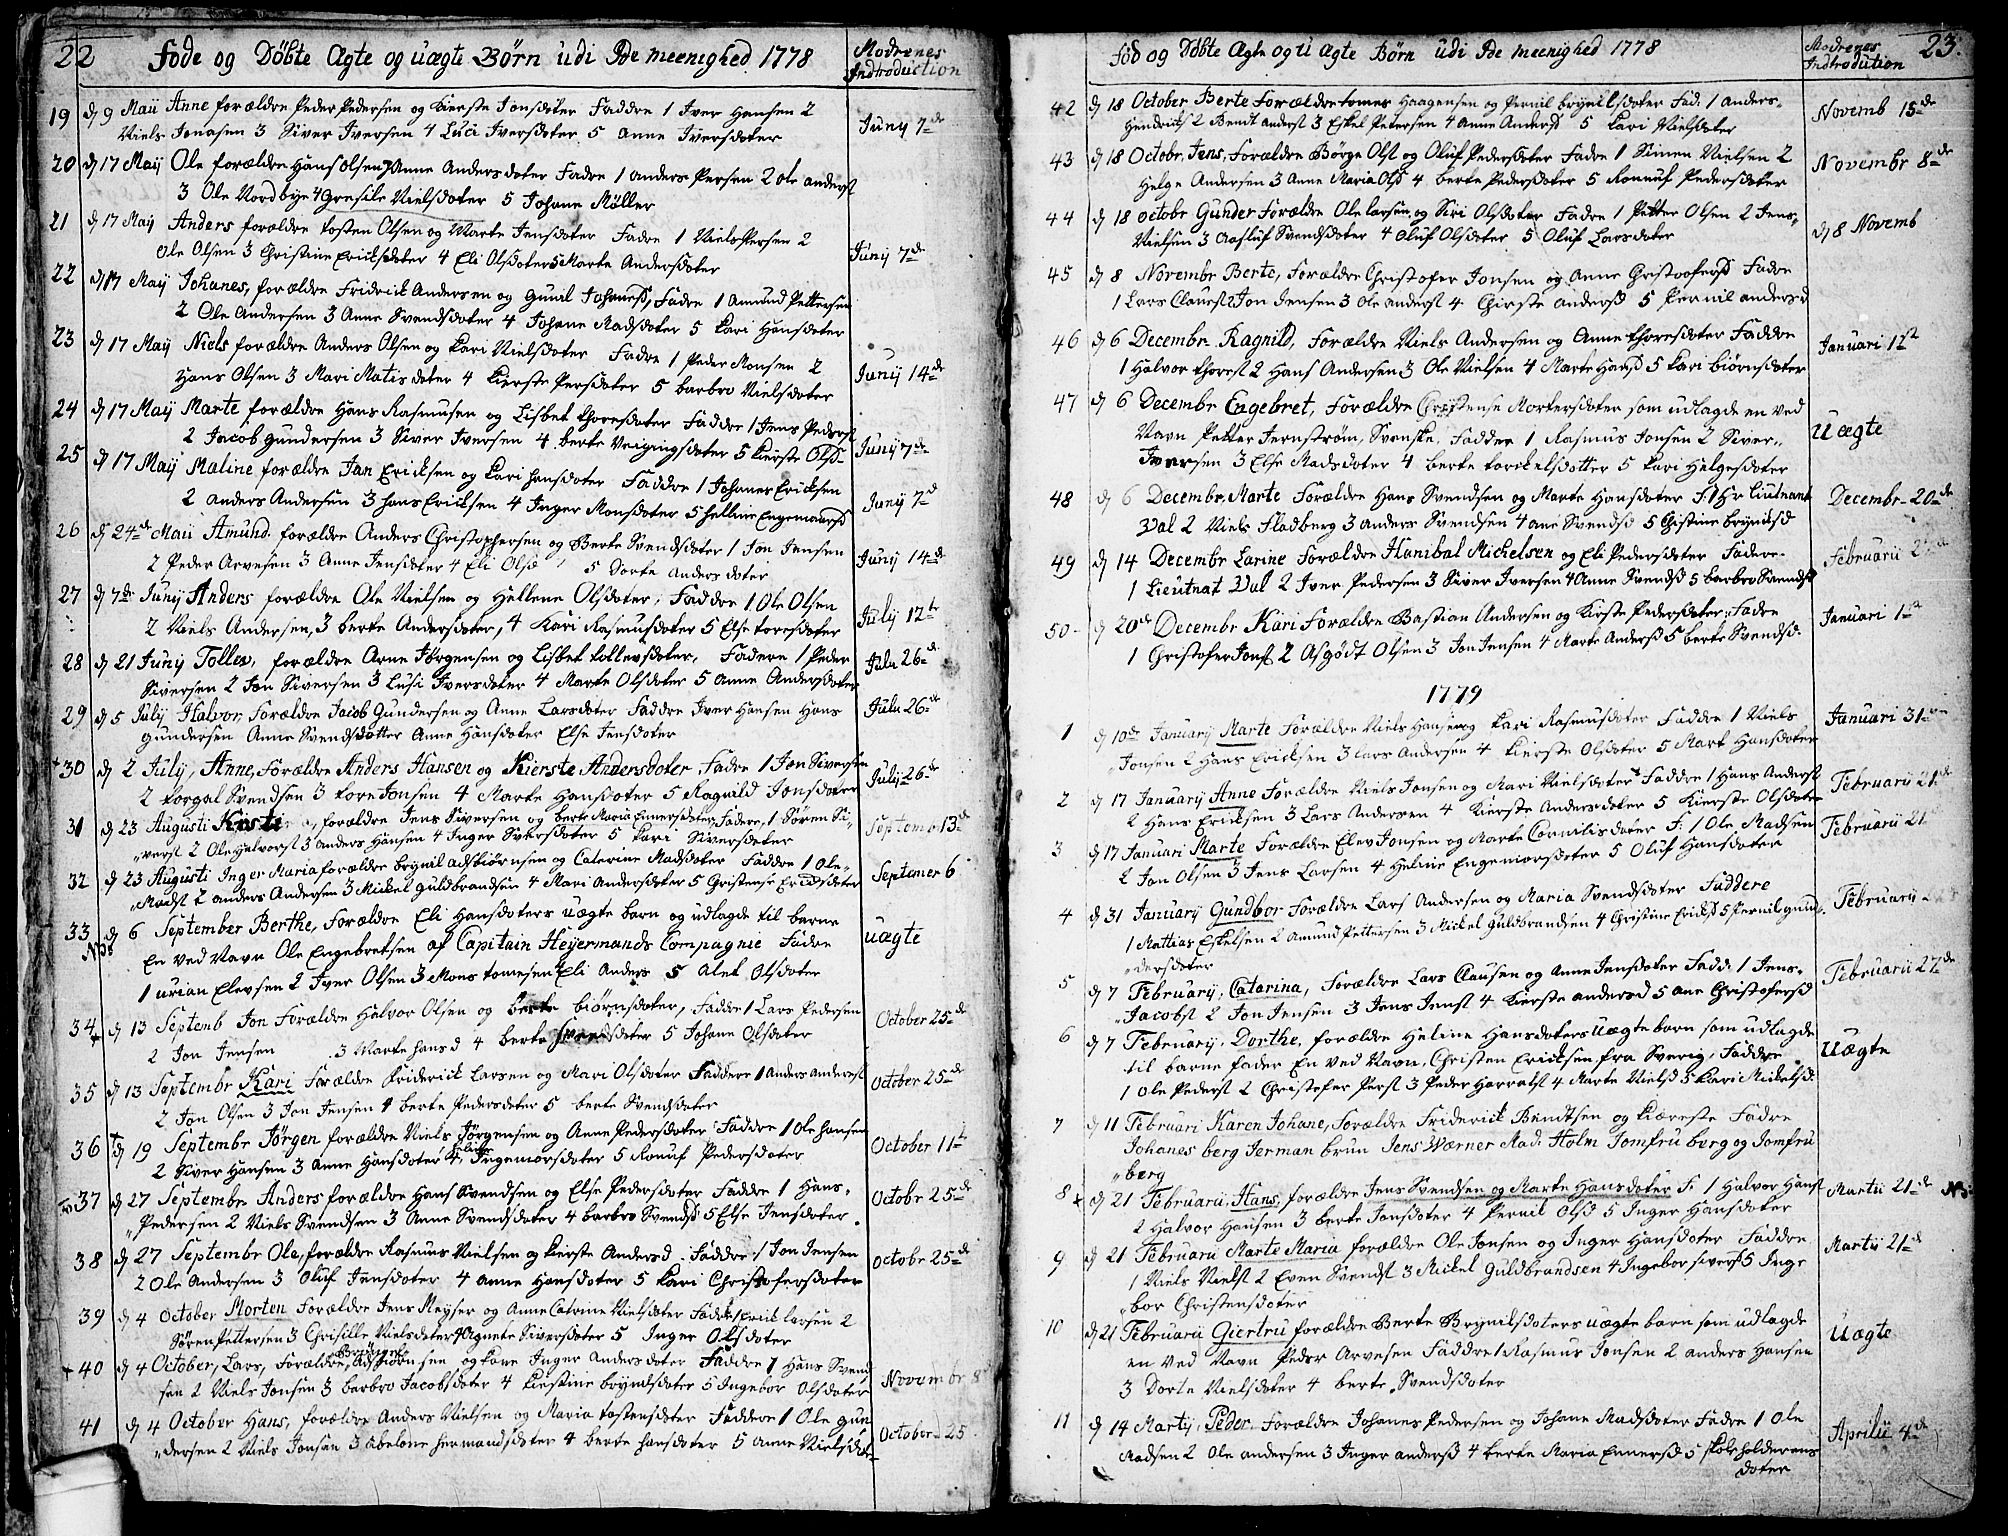 22 føde og Døbte Ægte og uægte Børn udi Ide meenighed 1778 Modrenes Indtroduction
19 d 9 Maii Anne forældre Peder Pedersen og Kierste Jonsdoter Faddre 1 Iver Hansen 2
Niels Jonasen 3 Siver Iversen 4 Luci Iversdoter 5 Anne Iversdoter Junÿ 7de
20 d 17 Maÿ Ole forældre Hans Olsen og Anne Andersdoter Fadre 1 anders Persen 2 ole anderst
3 Ole Nordbye 4 Gresile Nielsdoter 5 Johane Møller
21 d 17 Maÿ Anders forældre tosten Olsen og Marte Jensdoter Fadre 1 Niels Persen 2
Ole Olsen 3 Christine Ericksdoter 4 Eli Olsdoter 5 Marte Andersdoter Junÿ 7de
22 d 17 Maÿ Johanes, forældre Fridrick Andersen og Gunil Johanesd, Fadre 1 Amund Pettersen
2 Ole Andersen 3 Anne Svendsdoter 4 Johane Madsdoter 5 Kari Hansdoter
23 d 17 Maÿ Niels forældre Anders Olsen og Kari Nielsdoter Fadre 1 Peder Monsen 2
Hans Olsen 3 Mari Matisdoter 4 Kierste Persdoter 5 barbro Nielsdoter Junÿ 14de
24 d 17 Maÿ Marte forældre Hans Rasmusen og Lisbet thoresdoter Faddre 1 Jens Pederst
2 Jacob gundersen 3 Siver Iversen 4 berte 5 Kierste Olsd Junÿ 7de
25 d 17 Maÿ Maline forældre Jan Ericksen og Kari hansdoter Faddre 1 Johanes Ericksen
2 anders Andersen 3 hans Ericksen 4 Inger Monsdoter 5 helline Engemoersd Junÿ 7d
26 d 24de Maii Amund forældre Anders Christophersen og Berte Svendsdoter 1 Jon Jensen
2 Peder Arvesen 3 Anne Jensdoter 4 Eli Olsd 5 Dorte Andersdoter Junÿ 14de
27 d 7de Junÿ Anders forældre Ole Nielsen og Hellene Olsdoter, Faddre 1 Ole Olsen
2 Niels Andersen, 3 berte Andersdoter, 4 Kari Rasmusdoter 5 Else toresdoter Julÿ 12te
28 d 21 Junÿ Tollev, forældre Arne Jørgensen og Lisbet tollevsdoter, Fadere 1 Peder
Siversen 2 Jon Siversen 3 Lusi Iversdoter 4 Marte Olsdoter 5 Anne Andersdoter Julu 26de
29 d 5 Julÿ Halvor forældre Jacob Gundersen og Anne Larsdoter Faddre Iver Hansen Hans
gundersen Anne Svendsdotter Anne Hansdoter Else Jensdoter Julu 26de
+30 d 2 Julÿ, Anne, forældre Anders Hansen og Kierste Andersdoter, Fadre 1 Jon Siversen
2 torgal Svendsen 3 tore Jonsen 4 Marte Hansdoter 5 Ragnild Jonsdoter Julÿ 26de
31 d 23 Augusti Kirsti, forældre Jens Siversen og berte Maria Ennersdoter, Fadere, 1 Søren Si-
verst 2 Ole Halvorst 3 anders Hansen 4 Inger Siversdoter 5 Kari Siversdoter Septemb 13de
32 d 23 Augusti Inger Maria forældre brynil adsbiørnsen og Caterine Madsdoter Faddre 1 Ole
Madst 2 anders Andersen 3 Mickel guldbrandsen 4 Mari Andersdoter 5 Gristense Ericksdoter Septemer 6
33 d 6 September Berthe, forældre Eli Hansdoters uægte barn og udlagde til barne
NB: En ved Navn Ole Engebretsen af Capitain Heyermands Compagnie Fadre uægte
1 urian Elevsen 2 Iver Olsen 3 Mons tomesen 4 Eli Anders 5 Alet Olsdoter
34 d 13 Septemb Jon Forældre Halvor Olsen og berte biørnsdoter, Faddre 1 Lars Pedersen
2 Jon Jensen 3 Marte hansd 4 berte Svensdoter 5 Johane Olsdoter October 25de
35 d 13 Septembr Kari forældre Friderick Larsen og Mari Olsdoter Faddere 1 Anders anderst
2 Jon Olsen 3 Jon Jensen 4 berte Pedersdoter 5 berte Svendsdoter October 25de
36 +d 19 Septembr Jørgen forældre Niels Jørgensen og Anne Pedersdoter Faddre 1 Ole hansen
2 Siver Hansen 3 Anne Hansdoter, 4 Ingemorsdoter 5 Ronuf Pedersdoter October 11te
37 d 27 Septembr Anders forældre Hans Svendsen og Else Pedersdoter Faddre 1 Hans
Pedersen 2 Niels Svendsen 3 Anne Svendsdoter 4 barbro Svendsd 5 Else Jensdoter Octobr 25de
38 d 27 Septembr Ole, forældre Rasmus Nielsen og Kierste Andersd Faddre 1 Jon Jensen
2 Ole Andersen 3 Oluf Jensdoter 4 anne Hansdoter 5 Kari Christofersdoter octobr 25de
39 d 4 October Morten forældre Jens Meyser og Anne Catrine Nielsdoter Faddre 1 Erick larsen 2
Søren Pettersen 3 Chrisille Nielsdoter 4 Agnete Siversdoter 5 Inger Olsdoter
+40 d 4 October, Lars, forældre, Adsbiørnsen og Kone Inger Andersdoter Faddre 1 Hans Svend
sen 2 Niels Jonsen 3 barbro Jacobsdoter 4 Kiestine bryndsdoter 5 Ingebor Olsdoter Novembr 8
41 d 4 October Hans, forældre Anders Nielsen og Maria tostensdoter Faddre 1 Ole gun
dersen 2 Niels Jonsen 3 Abelone hermandsdoter 4 berte hansdoter 5 Anne Nielsdot October 25
fød og Døbte Ægte og u ægte Børn udi Ide meenighed 1778 Modrenes Indtrodution 23:
42 d 18 October Berte Forældre tomes Haagensen og Pernil brynilsdoter Fad: 1 anders
Hendricks 2 Bendt anderst 3 Eskel Pettersen 4 Anne Andersd 5 Kari Nielsdoter Novemb 15de
43 d 18 Octobr. Jens, Forældre Børge Olst og Oluf Pedersdoter Fadre 1 Simen Nielsen 2
Helge Andersen 3 Anne Maria Olsd 4 berte Pedersdoter 5 Ronnuf Pedersdoter Novembr 8de
44 d 18 octobr Gunder Forældre Ole larsen og Siri Olsdoter Fadre 1 Petter Olsen 2 Jens
Nielsen 3 Aasluf Svendsdoter 4 Oluf Olsdoter 5 Oluf Larsdoter d 8 Novemb
45 d 8 Novembr Berte, Forældre Christofer Jonsen og Anne Christofersd Fadre
1 Lars Clauest 2 Jon Jensen 3 Ole anderst 4 Chirste andersd 5 Pernil andersd
46 d 6 Decembr Ragnild, Forældre Niels Andersen og Anne thoresdoter Faddre
1 Halvor thorest 2 Hans Andersen 3 Ole Nielsen 4 Marte Hansd 5 Kari biørnsdoter Januari 1st
47 d 6 Decembr Engebret, Forældre Christense Mortersdoter som udlagde en ved
Navn Petter Jernstrøm, Svenske, Faddre 1 Rasmus Jonsen 2 Siver uægte
Iversen 3 Else Madsdoter 4 berte torckelsdotter 5 Kari Helgesdoter
48 d 6 Decembr, Marte Forældre Hans Svendsen og Marte Hansdoter F: 1 Hr Liutnant
Dal 2 Niels Fladberg 3 anders Svendsen 4 ane Svendsd 5 Christine bryniksd Decembr 20de
49 d 14 Decembr Larine Forældre Hanibal Michelsen og Eli Pedersdoter Fadere
1 Lieutnat Dal 2 Iver Pedersen 3 Siver Iversen 4 Anne Svendsd 5 barbro Svendsd Februarii 2
50 d 20de Decembr Kari Forældre Bastian Andersen og Kirste Pedersdoter, Fadre
1 Christofer Jonst 2 Asgødt Olsen 3 Jon Jensen 4 Marte Andersd 5 berte Svendsd. Januari 1st
1779
1 d 10de Januarÿ Marte Forældre Niels Hansen og Kari Rasmusdoter Faddre 1 Niels
Jonsen 2 Hans Ericksen 3 lars Andersen 4 Kierste Olsdoter 5 Mart Hansdoter Januari 31
2 d 17 Januarÿ Anne Forældre Niels Jonsen og Mari Nielsdoter Faddre 1 Hans Anderst
2 Hans Ericksen 3 Lars Andersen 4 Kierste Andersdoter 5 Kierste Olsdoter Februarii 21de
3 d 17 Januari Marte Forældre Elev Jonsen og Marte Cornilisdoter F: 1 Ole Madsen
2 Jon Olsen 3 Jens Larsen 4 Helnie Engemorsdoter 5 Oluf Hansdoter Februarii 21
4 d 31 Januarÿ Gundbor Forældre Lars Andersen og Maria Svendsdoter Faddere
1 Mattias Eskelsen 2 Amund Pettersen 3 Mickel Guldbrandsen 4 Christine Ericksd 5 Pernil gun
dersdoter Februarii
5 d 7 Februarÿ, Catarina, Forældre Lars Clausen og Anne Jensdoter Fadd: 1 Jens
Jacobst 2 Jon Jensen 3 Jens Jenst 4 Kierste andersd 5 ane Christofersd Februarii 27de
6 d 7 Februarÿ, Dorthe, forældre Heline Hansdoters uægte barn som udlagde
til barne fader En ved Navn, Christen Ericksen fra Sverig, Faddre uægte
1 Ole Pederst 2 Christofer Perst 3 Peder Harralst 4 Marte Nielsd 5 Kari Mickelsd.
7 d 11 Februari Karen Johane, Forældre Friderick Bendtsen og Kiæreste Fadre
Johanes berg Jerman brun Jens Wærner Mad: Holm Jomfru berg og Jomfru
berg
8 + d 21 Februarii, Hans, forældre Jens Svendsen og Marte Hansdoter F: 1 Halvor Hanst
2 Halvor Hansen 3 berte Jonsdoter 4 Pernil Olsd 5 Inger Hansdoter Martii 21de NB:
9 d 21 Februarii Marte Maria forældre Ole Jonsen og Inger Hansdoter Faddre
1 Niels Nielst 2 Even Svendst 3 Mickel Guldbrandsen 4 Ingebor sivers 5 Inge
bor Christensdoter Martii 21de
10 d 21 Februarii Giertru forældre Berte Brynilsdoters uægte barn som udlagde
en ved Navn Peder Arvesen Faddre 1 Rasmus Jonsen 2 anders Hansen uægte
3 Dorte Nielsdoter 4 berte Svendsdoter
11 d 14 Martÿ, Peder, Forældre Johanes Pedersen og Johane Madsdoter Fadre 1 Ole
Madsen 2 Ole andersen 3 Inger andersd 4 berte Maria Ennersd 5 skoleholderens
doter Aprilii 4de